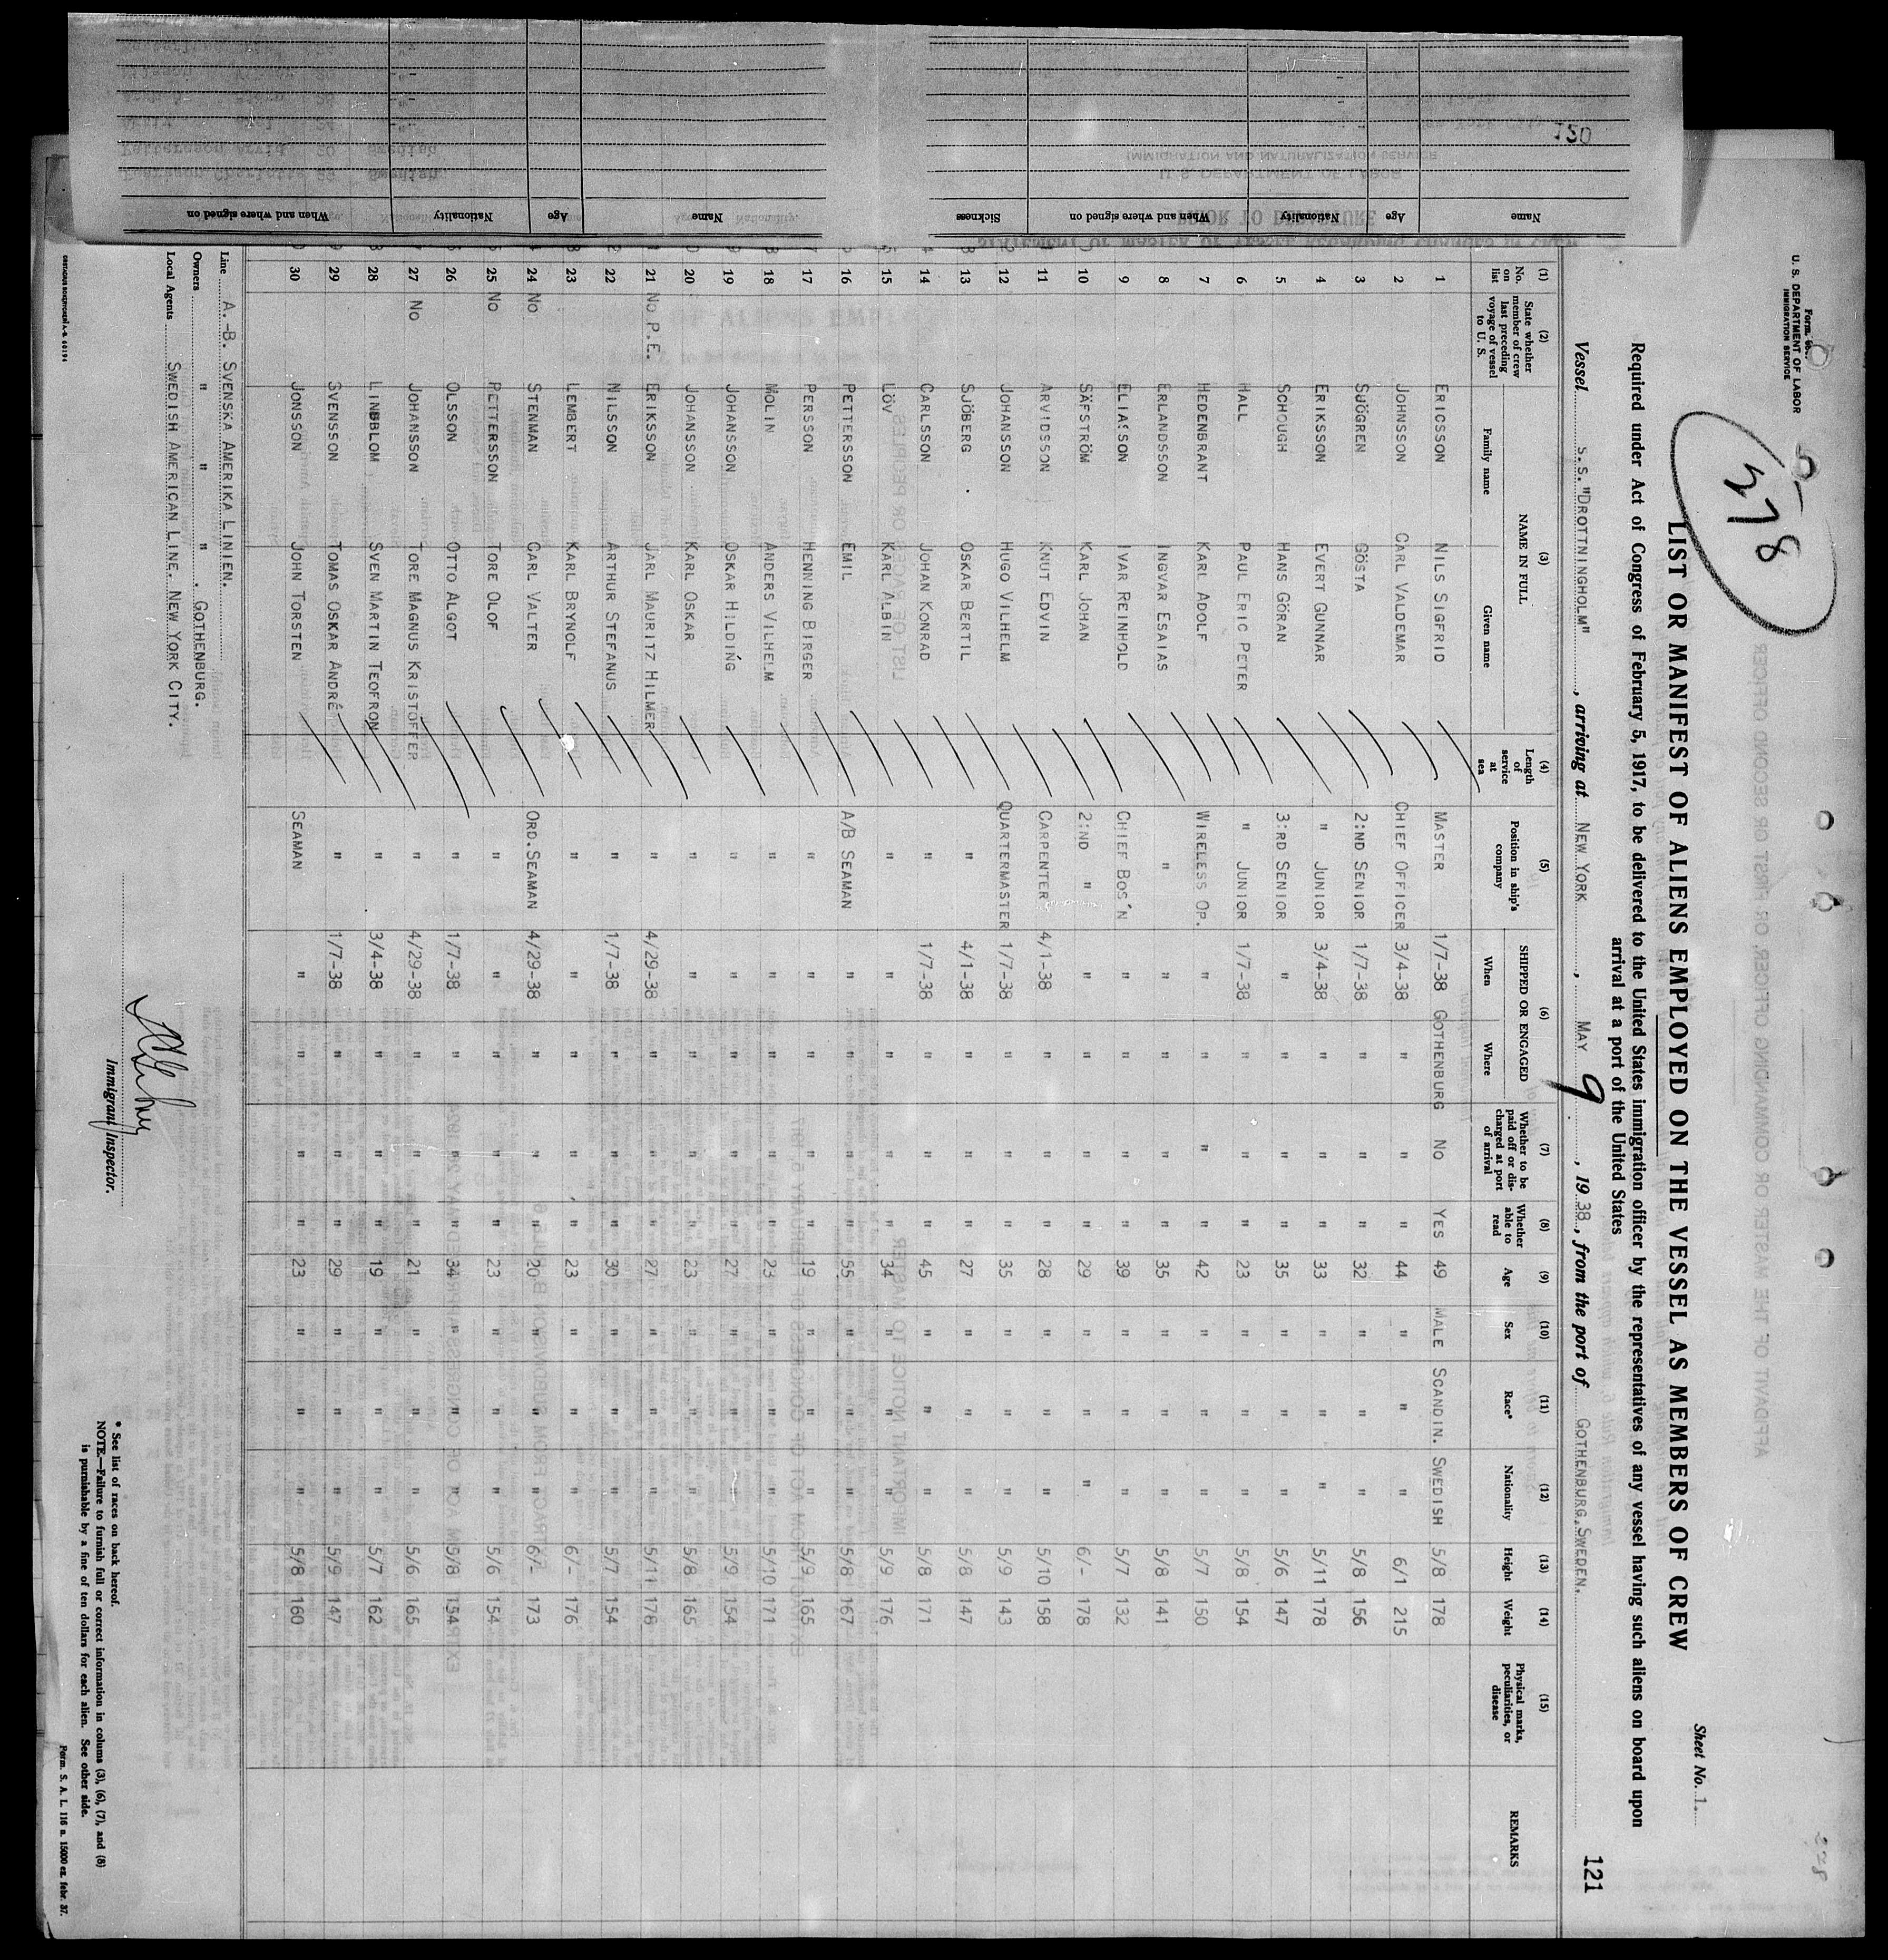 Form
U. S. DEPARTMENT OF LABOR
IMMIGRATION SERVICE
5-
478
Sheet No. 1.
LIST OR MANIFEST OF ALIENS EMPLOYED ON THE VESSEL AS MEMBERS OF CREW
Required under Act of Congress of February 5, 1917, to be delivered to the United States immigration officer by the representatives of any vessel having such aliens on board upon
arrival at a port of the United States
Vessel S.S."DROTTNINGHOLM", arriving at NEW YORK, MAY 9, 1938, from the port of GOTHENBURG, SWEDEN. 121
(1) (2) (3) (4) (5) (6) (7) (8) (9) (10) (11) (12) (13) (14) (15)
No. on list | State whether member of crew last preceding voyage of vessel to U. S. | NAME IN FULL Family name Given name | Length of service at sea | Position in ship's company | SHIPPED OR ENGAGED When Where | Whether to be paid off or discharged at port of arrival | Whether able to read | Age | Sex | Race* | Nationality | Height | Weight | Physical marks, peculiarities, or disease | REMARKS
1 ERICSSON NILS SIGFRID MASTER 1/7-38 GOTHENBURG NO YES 49 MALE SCANDIN. SWEDISH 5/8 178
2 JOHNSSON CARL VALDEMAR CHIEF OFFICER 3/4-38 " " " 44 " " " 6/1 215
3 SJÖGREN GÖSTA 2:ND SENIOR 1/7-38 " " " 32 " " " 5/8 156
4 ERIKSSON EVERT GUNNAR " JUNIOR 3/4-38 " " " 33 " " " 5/11 178
5 SCHOUGH HANS GÖRAN 3:RD SENIOR " " " " 35 " " " 5/6 147
6 HALL PAUL ERIC PETER " JUNIOR 1/7-38 " " " 23 " " " 5/8 154
7 HEDENBRANT KARL ADOLF WIRELESS OP. " " " " 42 " " " 5/7 150
8 ERLANDSSON INGVAR ESAIAS " " " " " 35 " " " 5/8 141
9 ELIASSON IVAR REINHOLD CHIEF BOS'N " " " " 39 " " " 5/7 132
10 SÄFSTRÖM KARL JOHAN 2:ND " " " " " 29 " " " 6/- 178
11 ARVIDSSON KNUT EDVIN CARPENTER 4/1-38 " " " 28 " " " 5/10 158
12 JOHANSSON HUGO VILHELM QUARTERMASTER 1/7-38 " " " 35 " " " 5/9 143
13 SJÖBERG OSKAR BERTIL " 4/1-38 " " " 27 " " " 5/8 147
14 CARLSSON JOHAN KONRAD " 1/7-38 " " " 45 " " " 5/8 171
15 LÖV KARL ALBIN " " " " " 34 " " " 5/9 176
16 PETTERSSON EMIL A/B SEAMAN " " " " 55 " " " 5/8 167
17 PERSSON HENNING BIRGER " " " " " 19 " " " 5/9 165
18 MOLIN ANDERS VILHELM " " " " " 23 " " " 5/10 171
19 JOHANSSON OSKAR HILDING " " " " " 27 " " " 5/9 154
20 JOHANSSON KARL OSKAR " " " " " 23 " " " 5/8 165
21 No P.E. ERIKSSON JARL MAURITZ HILMER " 4/29-38 " " " 27 " " " 5/11 178
22 NILSSON ARTHUR STEFANUS " 1/7-38 " " " 30 " " " 5/7 154
23 LEMBERT KARL BRYNOLF " " " " " 23 " " " 6/- 176
24 No STENMAN CARL VALTER ORD. SEAMAN 4/29-38 " " " 20 " " " 6/- 173
25 No PETTERSSON TORE OLOF " " " " " 23 " " " 5/6 154
26 OLSSON OTTO ALGOT " 1/7-38 " " " 34 " " " 5/8 154
27 No JOHANSSON TORE MAGNUS KRISTOFFER " 4/29-38 " " " 21 " " " 5/6 165
28 LINDBLOM SVEN MARTIN TEOFRON " 3/4-38 " " " 19 " " " 5/7 162
29 SVENSSON TOMAS OSKAR ANDRÉ " 1/7-38 " " " 29 " " " 5/9 147
30 JONSSON JOHN TORSTEN SEAMAN " " " " 23 " " " 5/8 160
Line A.-B. SVENSKA AMERIKA LINIEN.
Owners " " " . GOTHENBURG.
Local Agents SWEDISH AMERICAN LINE. NEW YORK CITY.
Immigrant Inspector.
* See list of races on back hereof.
NOTE.—Failure to furnish full or correct information in colums (3), (6), (7), and (8)
is punishable by a fine of ten dollars for each alien. See other side.
Form. S. A. L. 116 n. 15000 ex. febr. 37.
Name Age Nationality When and where signed Sickness
Name Age Nationality When and where signed
150
PRIOR TO DEPARTURE
U. S. DEPARTMENT OF LABOR
IMMIGRATION AND NATURALIZATION SERVICE
AFFIDAVIT OF THE MASTER OR COMMANDING OFFICER, OR FIRST OR SECOND OFFICER
LIST OF RACES OR PEOPLES
IMPORTANT NOTICE TO MASTER